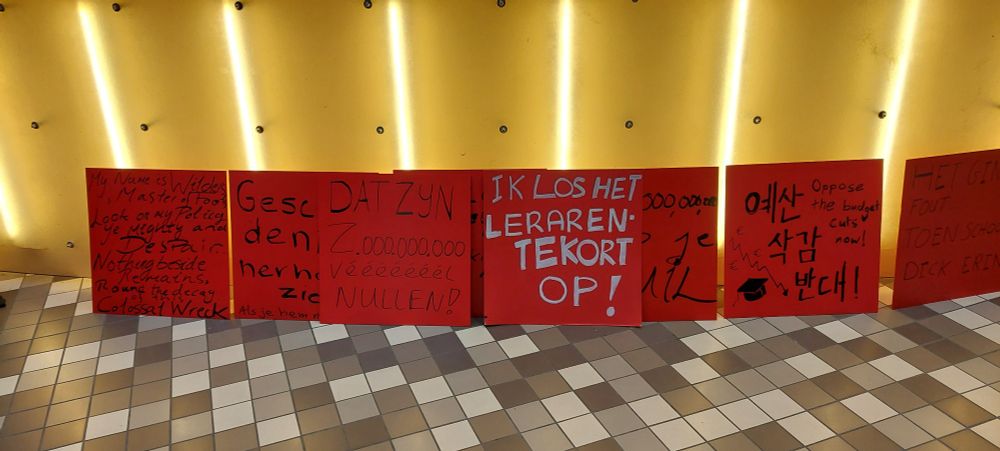 My Name is Wilders,
Master of Fools
Look on my Policy,
ye Mighty and
Despair.
Nothing beside
remains,
Round the decay
of the
Colossal Wreck
Gesc
den
herh
zie
Als je hem
DAT ZYN
2.000.000.000
Véééééééél
NULLEN!
IK LOS HET
LERAREN-
TEKORT
OP!
000,000
je
예산
삭감
반대!
Oppose
the budget
cuts
now!
HET GI
FOUT
TOEN SCHO
DICK